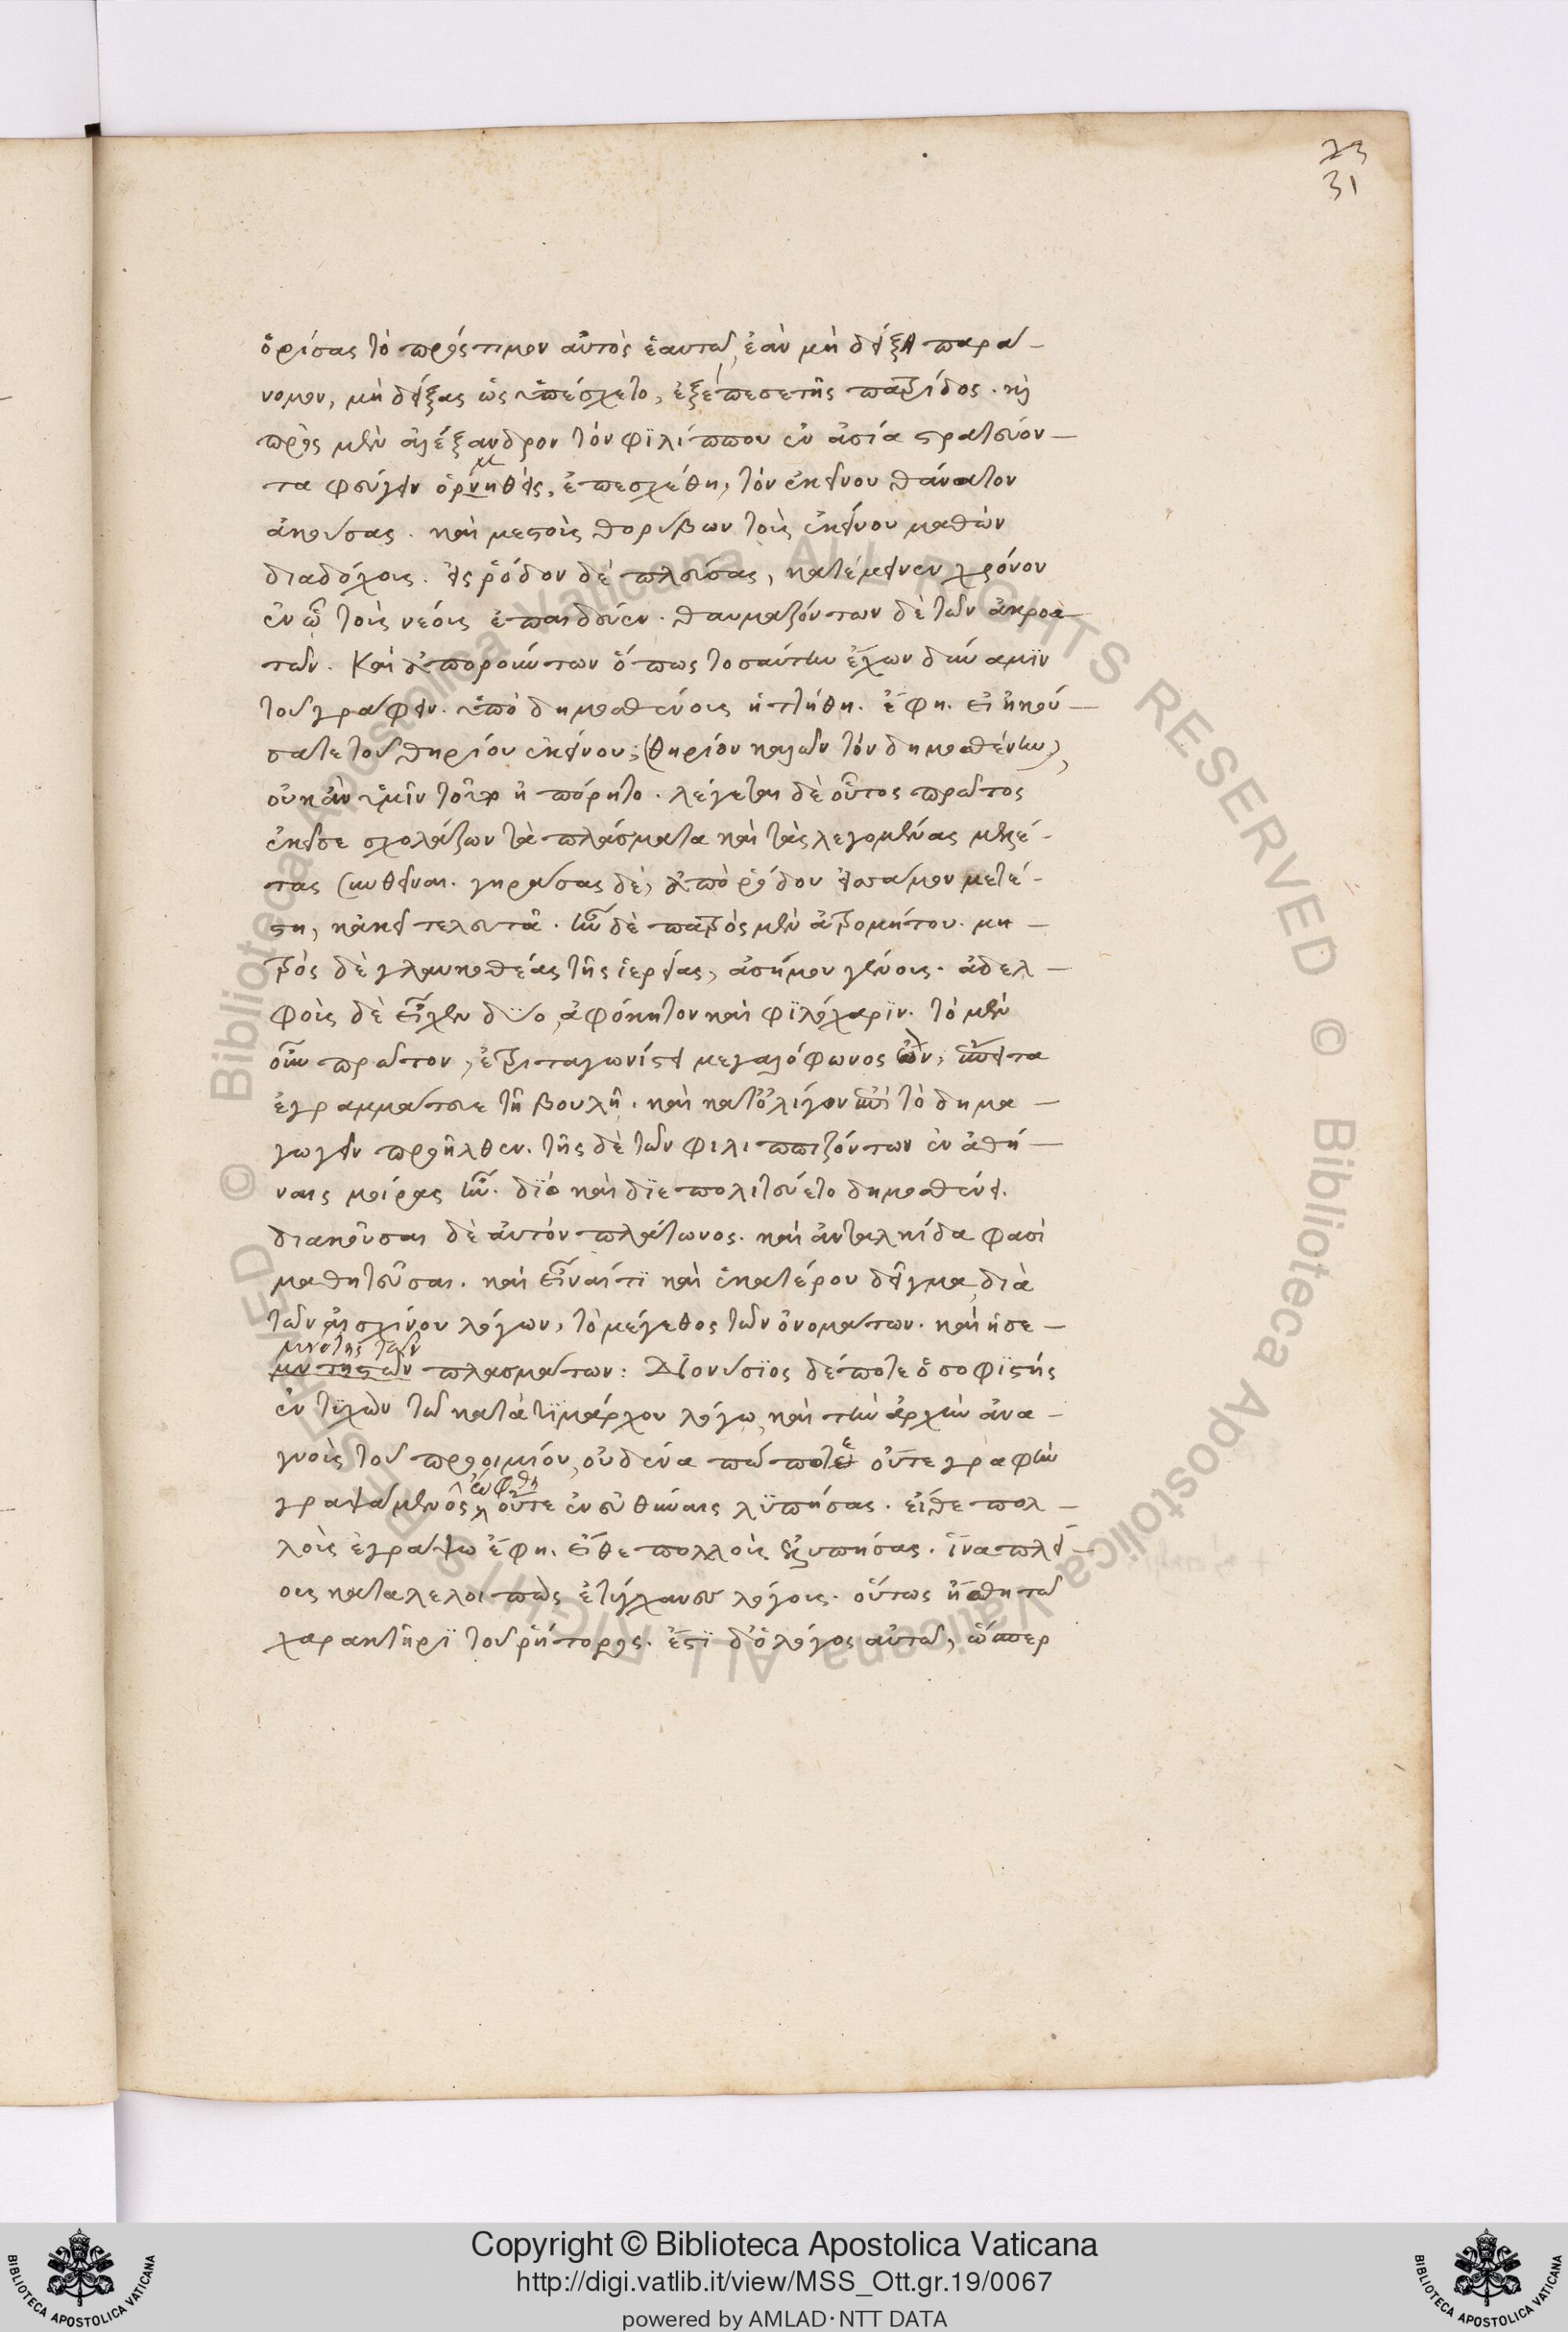 23
31
ὁρίσας τὸ πρόστιμον αὐτὸς ἑαυτῶ, ἐὰν μὴ δείξη παρά-
νομον, μὴ δείξας ὡς ὑπέσχετο, ἐξέπεσε τῆς πατρίδος. κὶ
πρὸς μὲν ἀλέξανδρον τὸν φϊλίππου ἐν ἀσία στρατεύον-
τα φεύγειν ὁρνηθεὶς, ἐπεσχέθη, τὸν ἐκείνου θάνατον
μ
ἀκούσας. καὶ μεστοὺς θορύβων τοὺς ἐκείνου μαθὼν
διαδόχους. εἰς ῥόδον δὲ πλεύσας, κατέμεινεν χρόνον
ἐν ὧ τοὺς νέους ἐπαιδευεν. θαυμαζόντων δὲ τῶν ἀκροα-
τῶν. Καὶ ἀπορούντων ὅπως τοσαύτην ἔχων δύναμϊν
τοῦ γράφειν. ὑπὸ δημοσθένους ἡττήθη. ἔφη. εἰ ἠκού-
σατε τοῦ θηρίου ἐκείνου; (θηρίον καλῶν τὸν δημοσθένην),
οὐκ ἂν ὑμῖν τοῦτο ἠπόρητο. λέγεται δὲ οὗτος πρῶτος
ἐκεῖσε σχολάζων τὰ πλάσματα καὶ τὰς λεγομένας μελέ-
τας συνθεῖναι. γηράσας δὲ, ἀπὸ ῥόδου εἰς σάμον μετέ-
στη, κἀκεῖ τελευτᾶ. ἦν δὲ πατρὸς μὲν ἀτρομήτου. μη-
τρὸς δὲ γλαυκοθέας τῆς ἱερείας, ἀσήμου γένους. ἀδελ-
φοὺς δὲ εἶχεν δύο, ἀφόκητον καὶ φϊλόχαρϊν. τὸ μὲν
οὖν πρῶτον, ἐτριταγωνίστει μεγαλόφωνος ὢν, ἔπειτα
ἐγραμμάτευε τῆ βουλῆ. καὶ κατ' ὀλίγον ἐπὶ τὸ δημα-
γωγεῖν προῆλθεν. τῆς δὲ τῶν φιλιππιζόντων ἐν ἀθή-
ναις μοίρας ἦν. δϊὸ καὶ δϊεπολιτεύετο δημοσθένει.
διακοῦσαι δὲ αὐτὸν πλάτωνος. καὶ ἀνταλκίδα φασὶ
μαθητεῦσαι. καὶ εἶναί τϊ καὶ ἑκατέρου δεῖγμα διὰ
τῶν αἰσχίνου λόγων, τὸ μέγεθος τῶν ὀνομάτων. καὶ ἡ σε-
μνότης τῶν
μντητῶν πλασμάτων: Διονύσϊος δέ ποτε ὁ σοφϊστής
ἐντϋχὼν τῶ κατὰ τϊμάρχου λόγω, καὶ τὴν ἀρχὴν ἀνα-
γνοὺς τοῦ προοιμίου, οὐδένα πώποτε οὔτε γραφὴν
γραψάμενος, οὔτε ἐν εὐθύναις λϋπήσας. εἴθε πολ-
λοὺς ἐγράψω ἔφη. εἴθε πολλοὺς ἐλυπήσας. ἵνα πλεί-
ους καταλελοιπὼς ἐτύγχανες λόγους. οὕτως ἥσθη τῶ
χαρακτῆρϊ τοῦ ῥήτορος. ἔστϊ δ' ὁ λόγος αὐτῶ, ὥσπερ
Copyright © Biblioteca Apostolica Vaticana
http://digi.vatlib.it/view/MSS_Ott.gr.19/0067
powered by AMLAD·NTT DATA